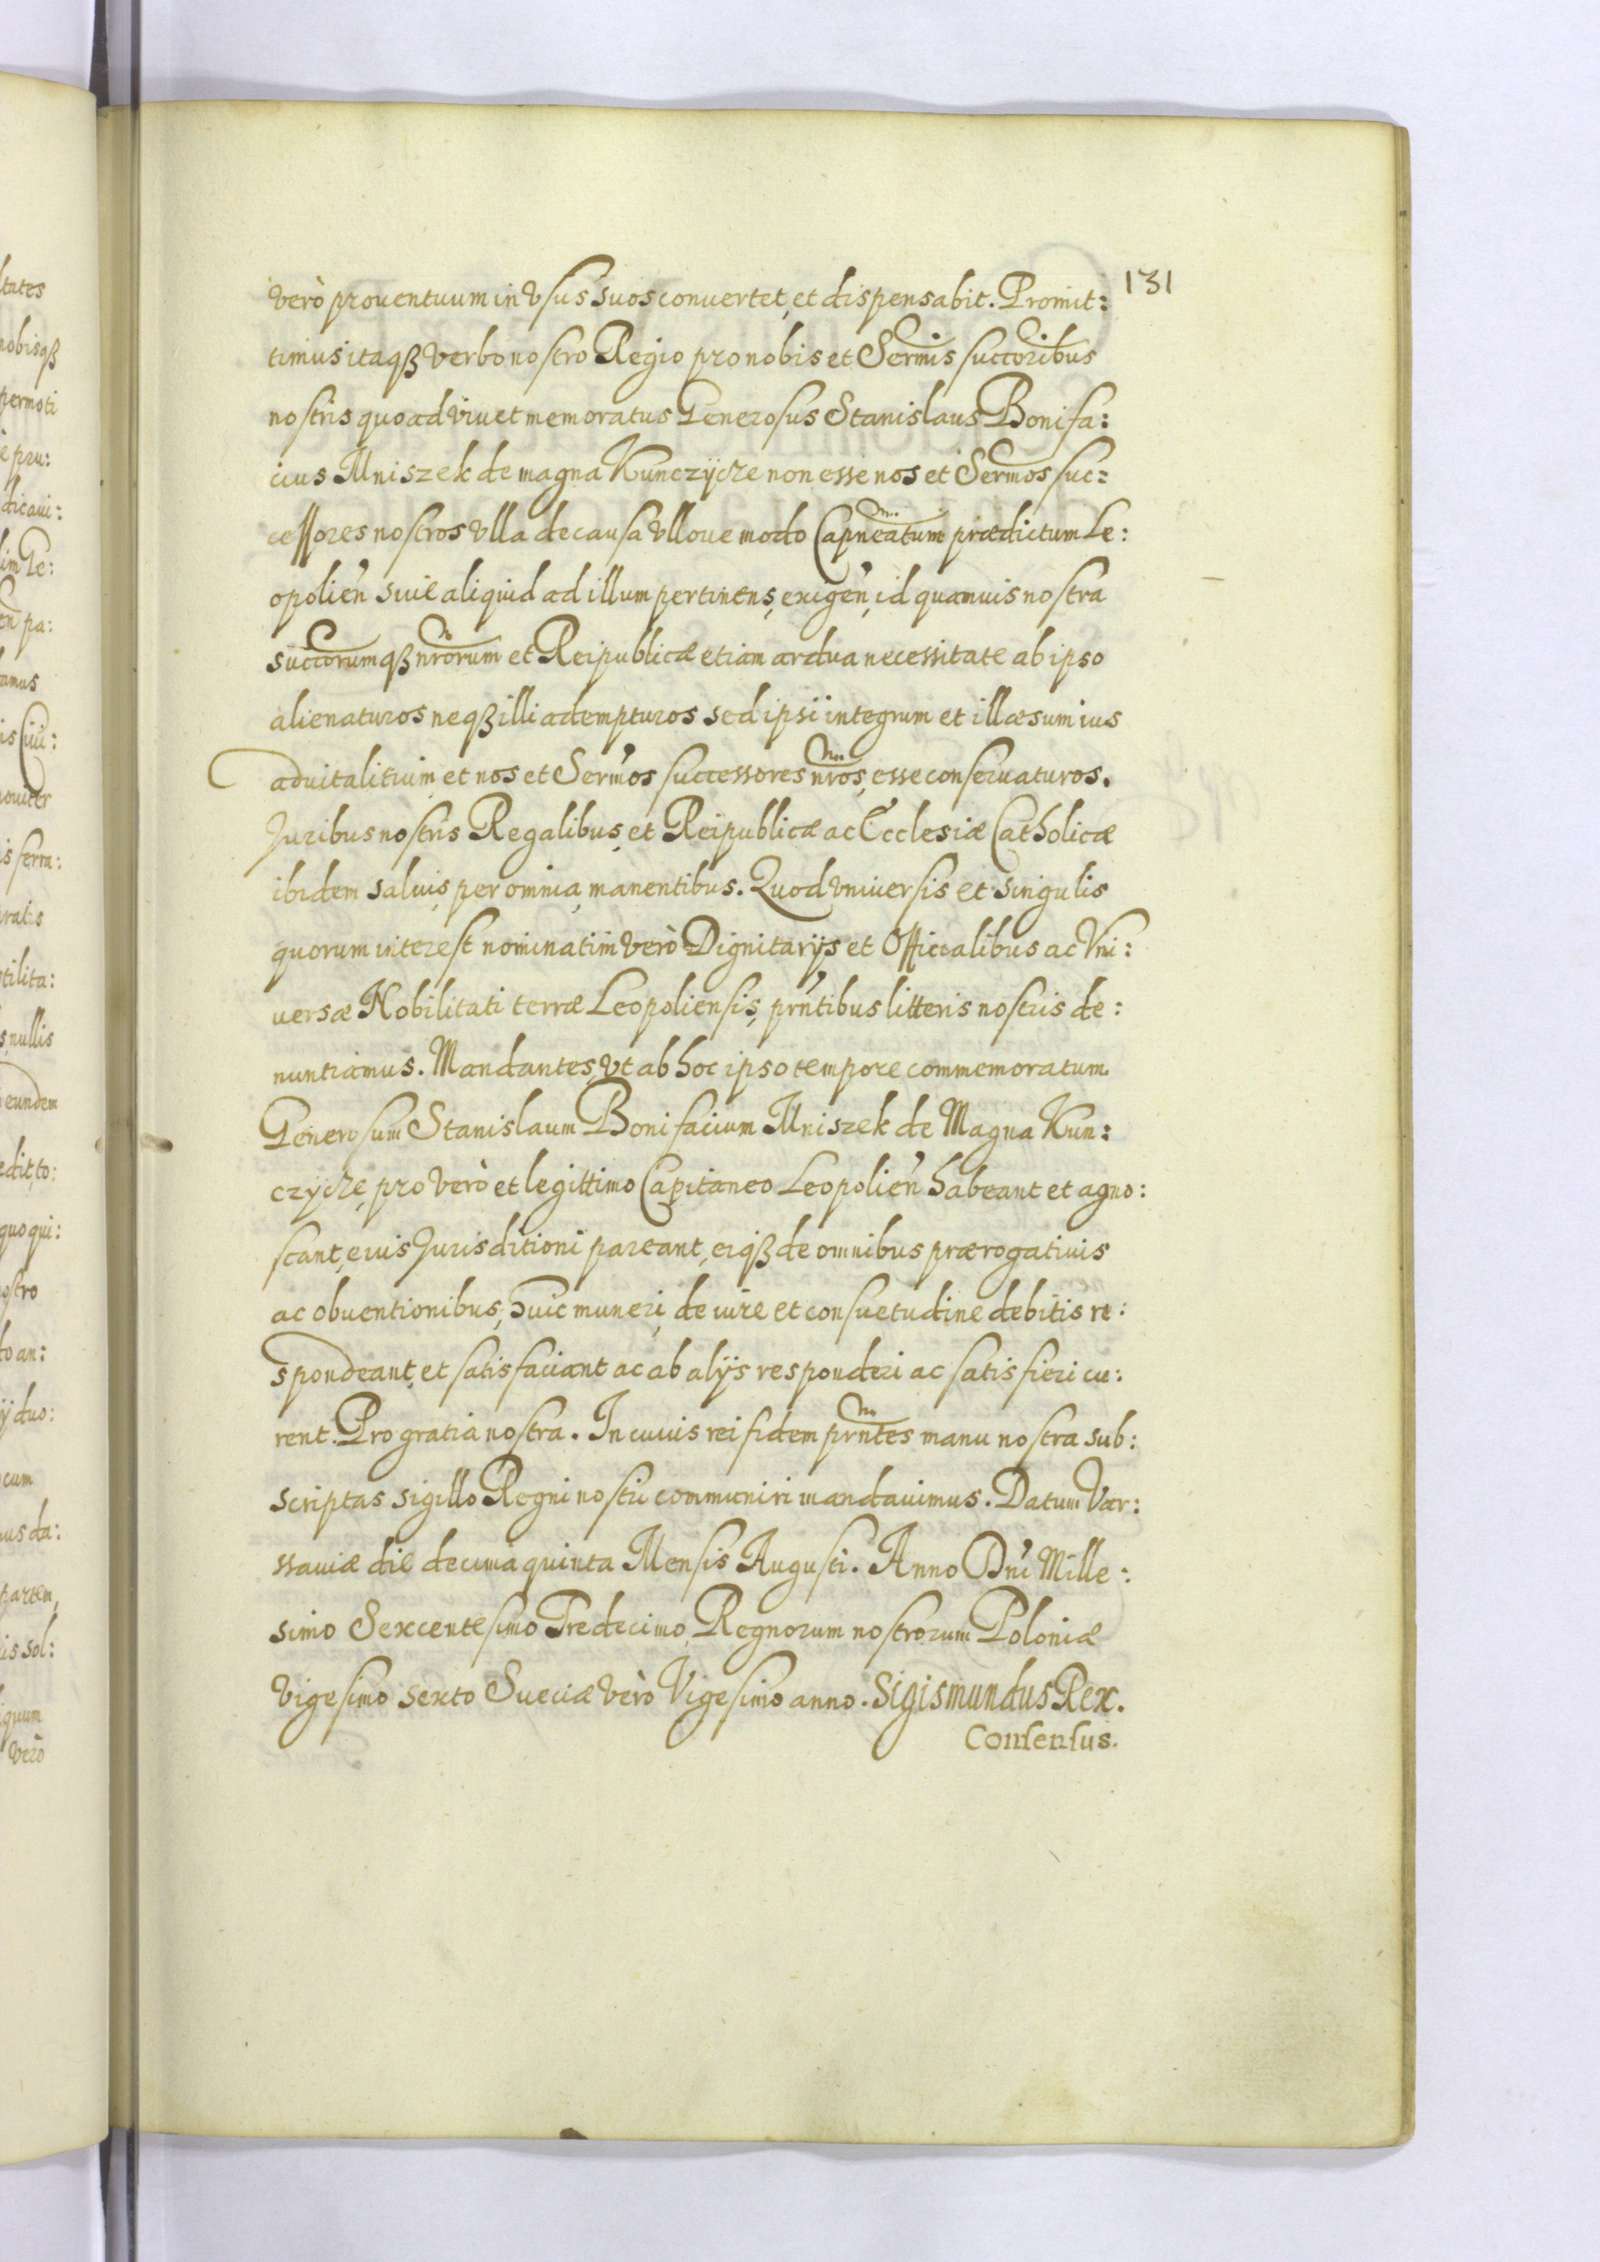 131
verò prouentuum in vsus suos conuertet, et dispensabit. Promit:
timus itaqß verbo nostro Regio pro nobis et Sermis succoribus
nostris quoad viuet memoratus Generosus Stanislaus Bonifa:
cius Mniszek de magna Kunczycze non esse nos et Sermos suc:
cessores nostros vlla de causa vlloue modo Capneatum prædictum Le:
opolien̉ siue aliquid ad illum pertinens, exigen̉, id quamuis nostra
succorumqß nrorum et Reipublicæ etiam ardua necessitate ab ipso
alienaturos neqß illi adempturos sed ipsi integrum et illæsum ius
aduitalitium, et nos et Serm̉os successores nros, esse conseruaturos.
Juribus nostris Regalibus, et Reipublicæ ac Ecclesiæ Catholicæ
ibidem saluis, per omnia, manentibus. Quod vniuersis et singulis
quorum interest nominatim verò Dignitarijs et Officialibus ac Vni:
uersæ Nobilitati terræ Leopoliensis, prn̉tibus litteris nostris de:
nuntiamus. Mandantes, vt ab hoc ipso tempore commemoratum
Generosum Stanislaum Bonifacium Mniszek de Magna Kun:
czycze, pro verò et legittimo Capitaneo Leopolien̉ habeant et agno:
scant, eius Jurisditioni pareant, eiqß de omnibus prærogatiuis
ac obuentionibus, huic muneri, de iure et consuetudine debitis re:
spondeant, et satisfaciant ac ab alijs responderi ac satisfieri cu:
rent. Pro gratia nostra. In cuius rei fidem prntes manu nostra sub:
scriptas sigillo Regni nostri communiri mandauimus. Datum Var:
ssauiæ die decima quinta Mensis Augusti. Anno Dn̉i Mille:
simo Sexcentesimo Tredecimo, Regnorum nostrorum Poloniæ
vigesimo sexto Sueciæ verò Vigesimo anno. Sigismundus Rex.
Consensus.